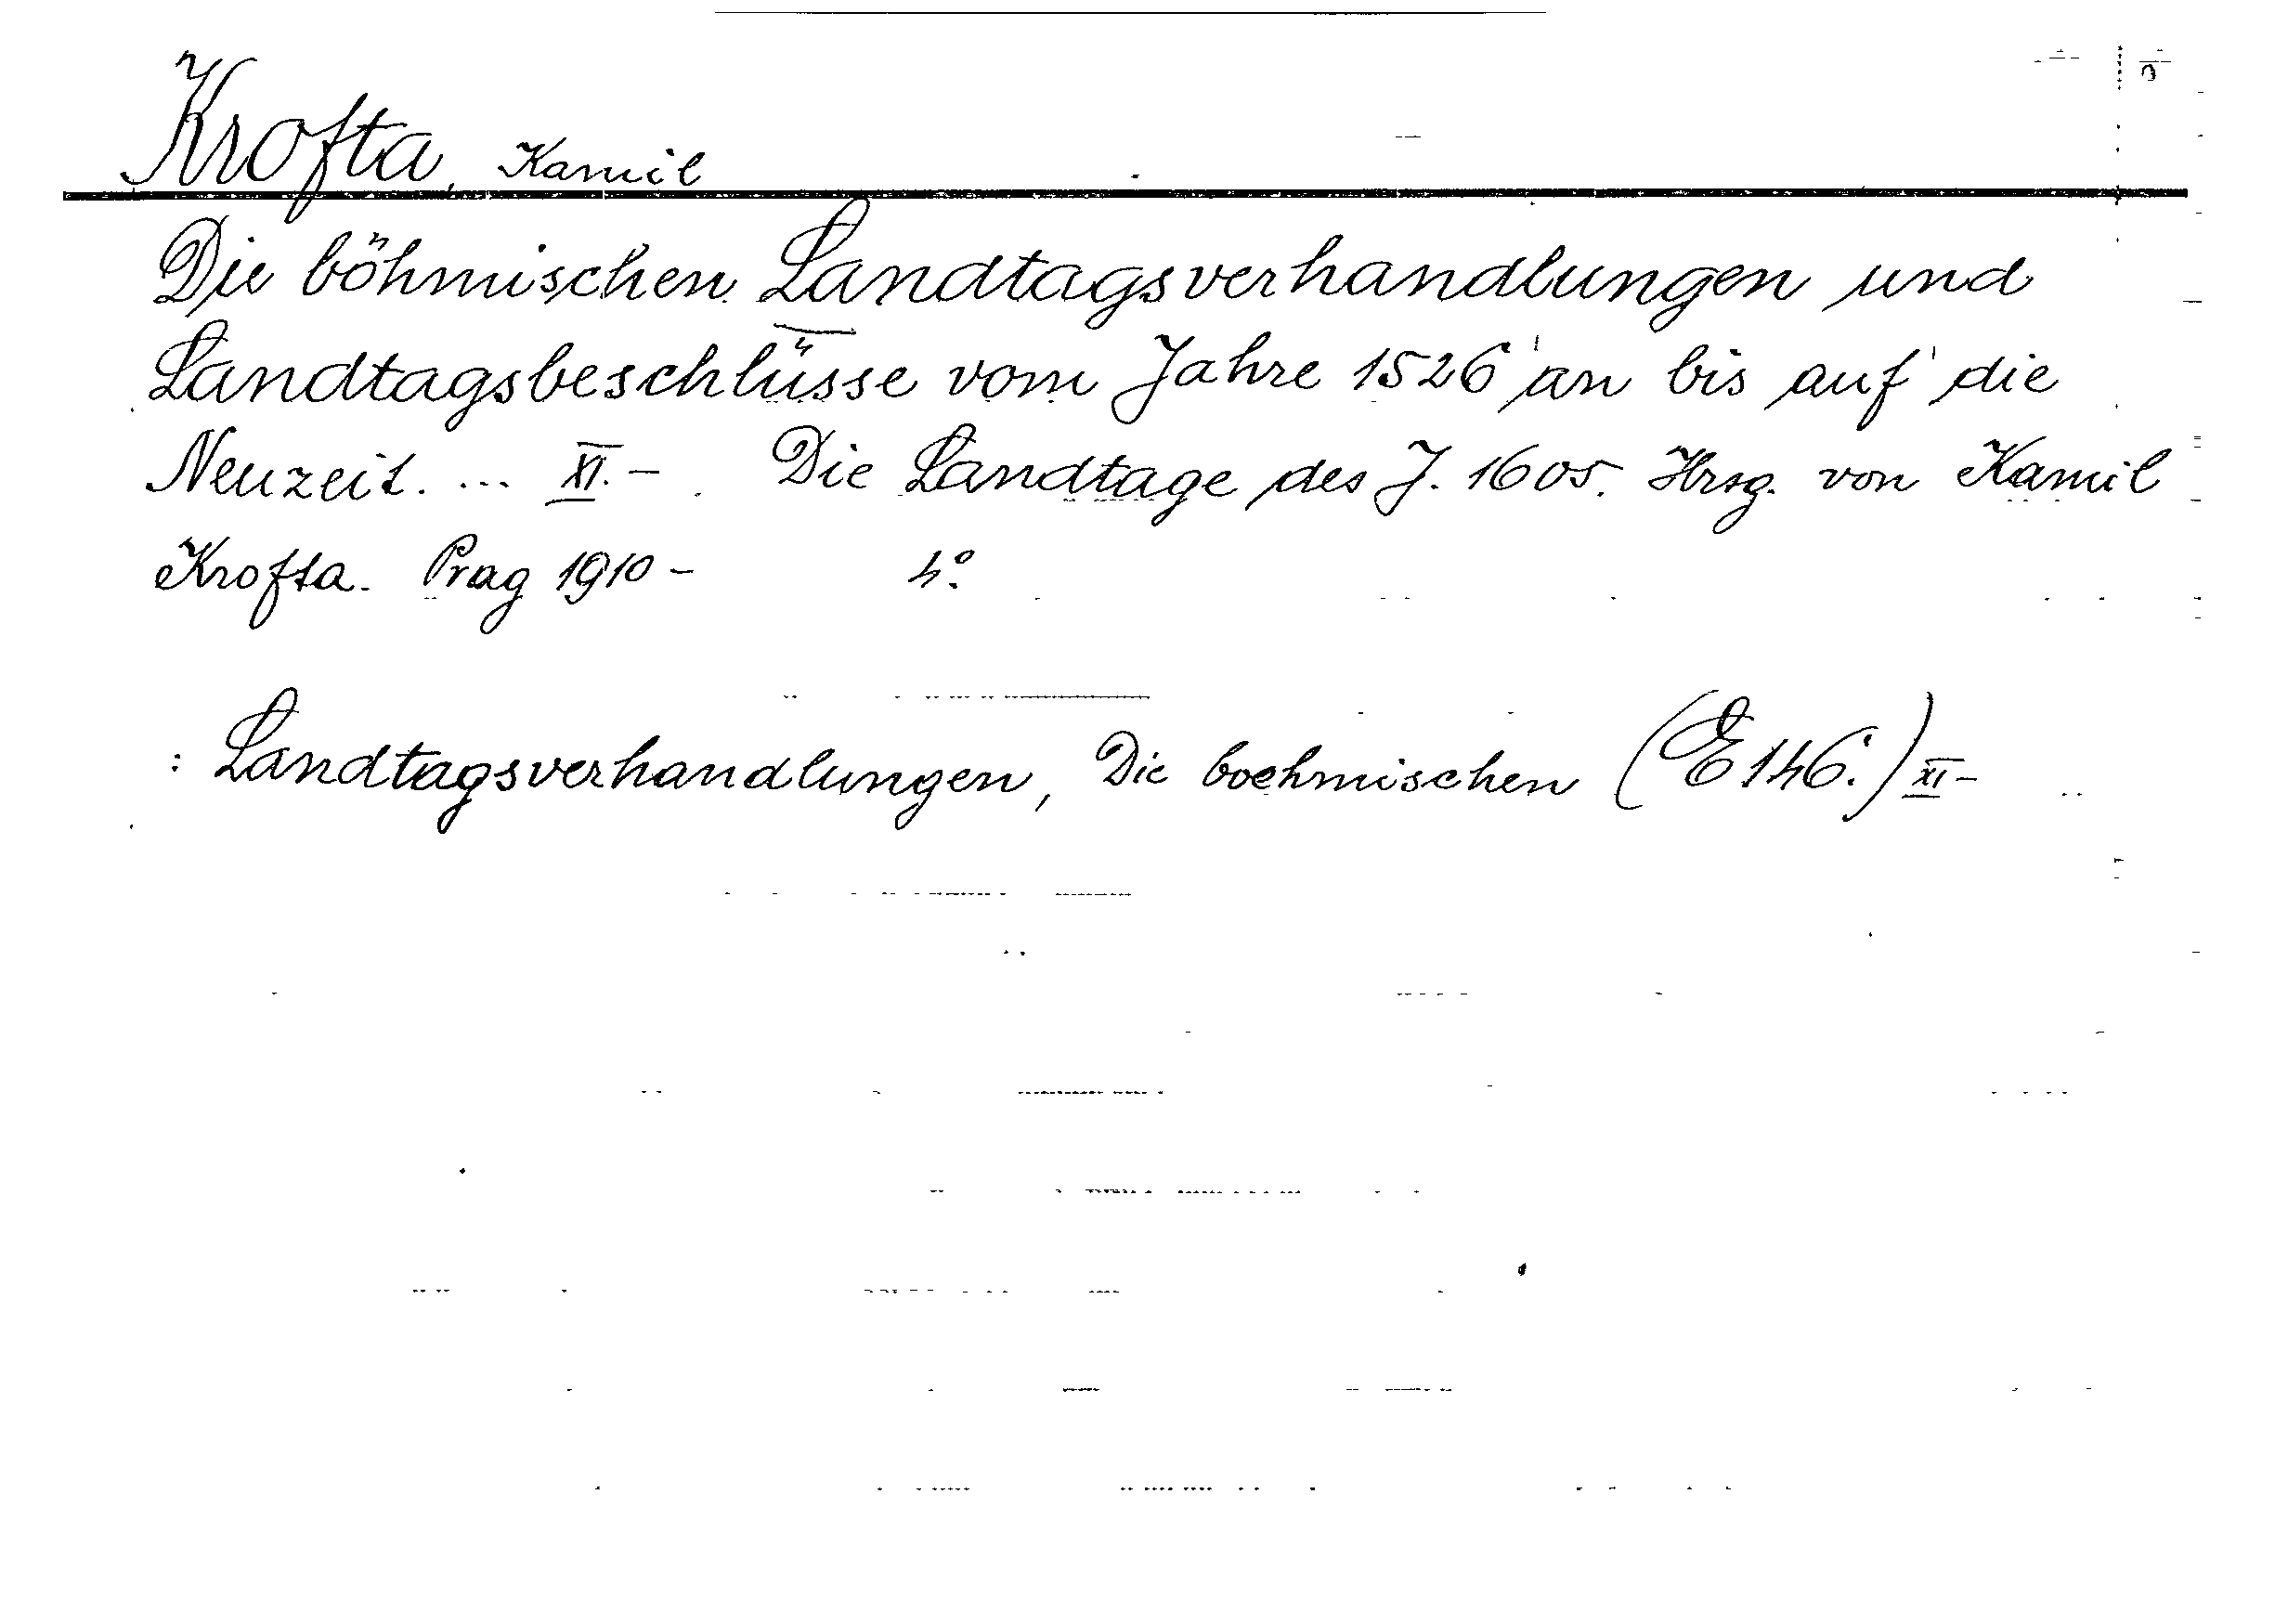 Krofta, Kamil
Die böhmischen Landtagsverhandlungen und
Landtagsbeschlüsse vom Jahre 1526 an bis auf die
Neuzeit. ... XI. - Die Landtage des J. 1605. Hrsg. von Kamil
Krofta. Prag 1910 - 4°.
: Landtagsverhandlungen, Die boehmischen (E 146.) XI -